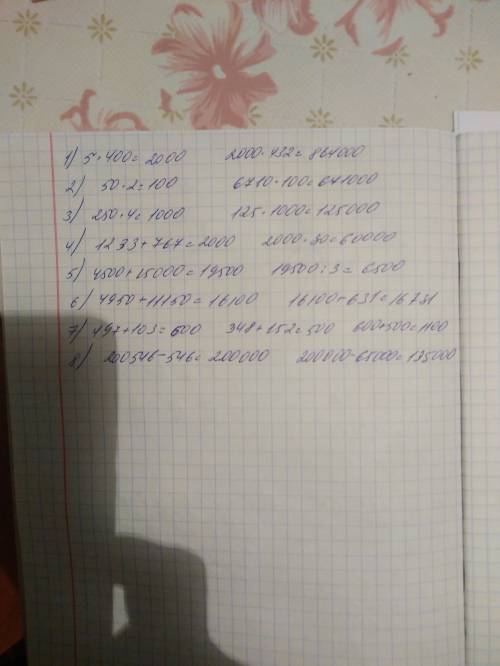 1) 5·400=2000 2000·432=864000
2) 50·2=100 6710·100=671000
3) 250·4=1000 125·1000=125000
4) 1233+767=2000 2000·30=60000
5) 4500+15000=19500 19500:3=6500
6) 4950+11150=16100 16100+631=16731
7) 497+103=600 348+152=500 600+500=1100
8) 200546-546=200000 200000-65000=135000